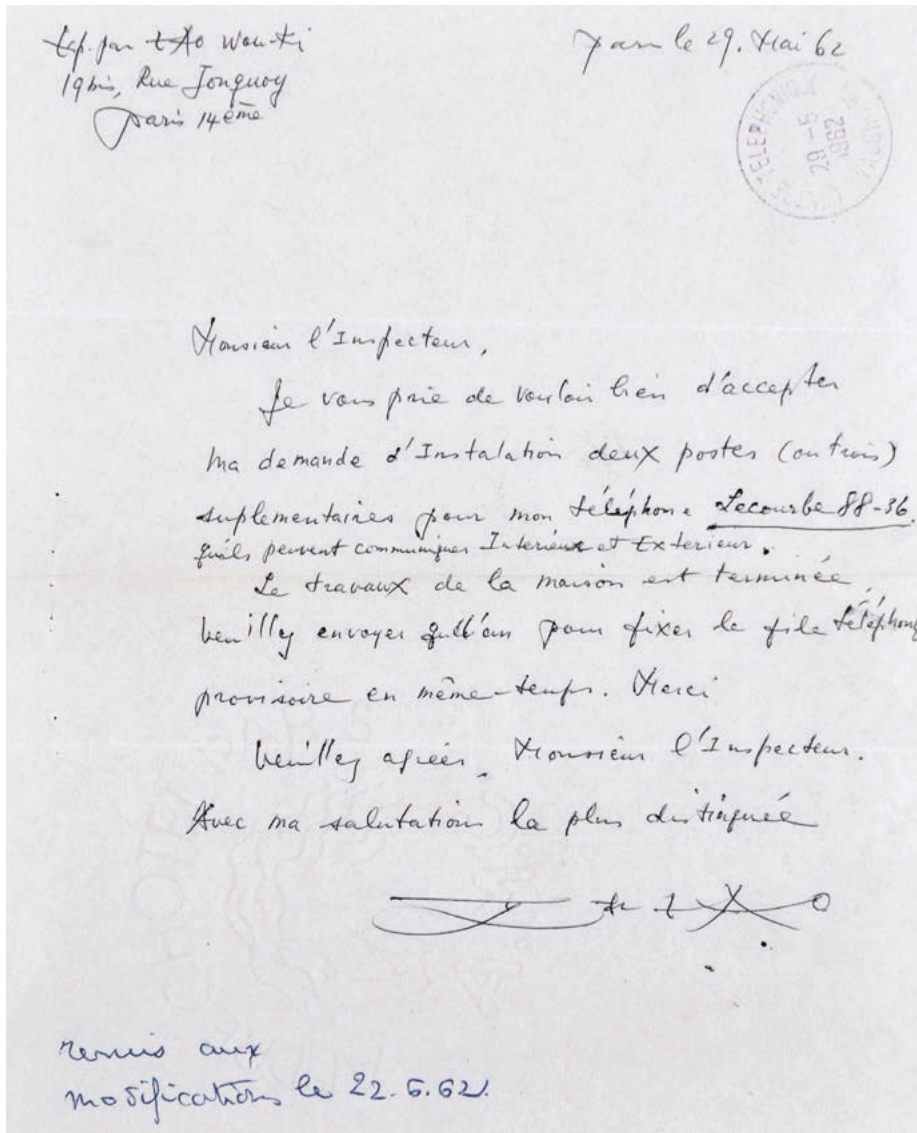 Exp. par ZAO Wou-Ki
19 bis, Rue Jonquoy
Paris 14ème
Paris le 29. Mai 62
CENTRE TELEPHONIQUE
29-5
1962
Monsieur l'Inspecteur,
Je vous prie de vouloir bien d'accepter
ma demande d'Instalation deux postes (ou trois)
suplementaires pour mon téléphone Lecourbe 88-36.
qu'ils peuvent communiquer Interieux et Extérieur.
Le travaux de la maison est terminée,
veuillez envoyer pour fixer le file téléphone
provisoire en même-temps. Merci
Veuillez agréer, Monsieur l'Inspecteur.
Avec ma salutations la plus distinguée
ZAO
remis aux
modifications le 22.6.62.